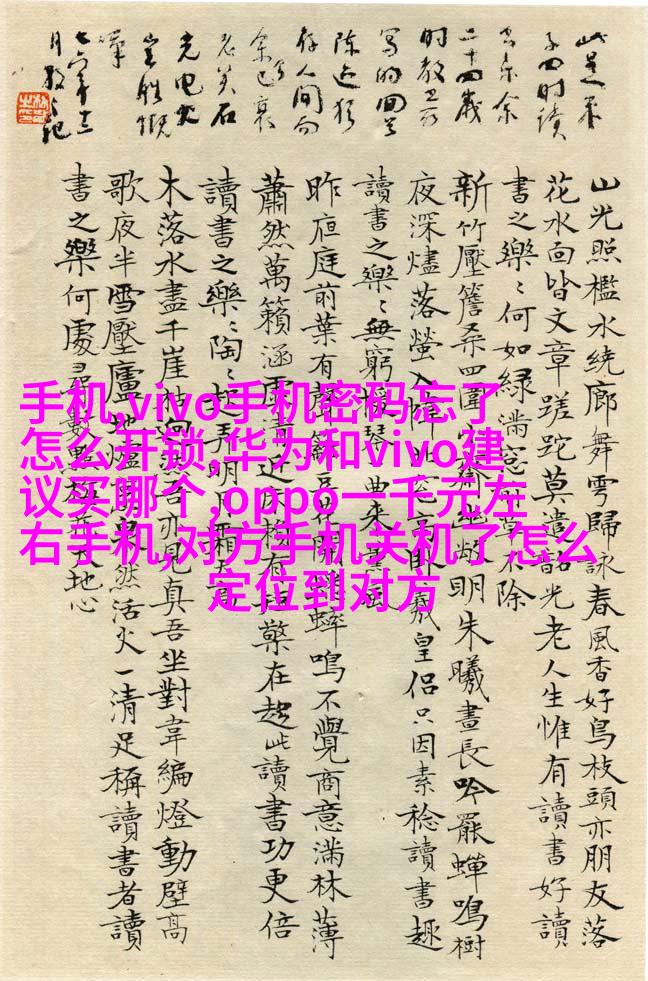 此是朱
子四时读
书乐余
二十四岁
时教卫
写的回首
陈迹犹
存人间而
余已衰
老矣石
火电光
岂胜慨
叹
七六年十二
月敬記
山光照檻水繞廊舞雩歸詠春風香好鳥枝頭亦朋友落
花水面皆文章蹉跎莫遣韶光老人生惟有讀書好讀
書之樂〻何如綠滿窓前草不除
新竹壓簷桑四圍小齋幽敞明朱曦晝長吟罷蟬鳴樹
夜深燼落螢入幃北窓高臥羲皇侶只因素稔讀書趣
讀書之樂〻無窮 琴一曲来薰風
昨夜庭前葉有聲籬豆花開蟋蟀鳴不覺商意滿林薄
蕭然萬籟涵虛清近床賴有短檠在趁此讀書功更倍
讀書之樂〻陶〻起弄明月霜天高
木落水盡千崖枯迥然吾亦見真吾坐對韋編燈動壁高
歌夜半雪壓廬地爐茶鼎烹活火一清足稱讀書者讀
書之樂何處尋數點梅花天地心
手机,vivo手机密码忘了
怎么开锁,华为和vivo建
议买哪个,oppo一千元左
右手机,对方手机关机了怎么
定位到对方